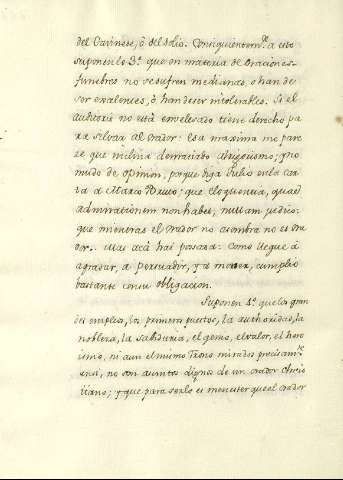 del Gavinete, ò del solio. Consiguientem.te a esto
supone lo 3.o que en materia de Oraciones
funebres no se sufren medianas, o han de
ser exalentes, ò han de ser intolerables. Si el
auditorio no está envelesado tiene derecho pa
ra silvar al orador: Esa maxima me pare
ze que inclina demasiado al rigorismo; y no
mudo de opinion, porque diga Tulio en la car
ta a Marco Bruto: que Eloquentia, quae
admirationem non habet, nullam judico:
que mientras el orador no asombra no es ora
dor. Mas acá hai posada: Como llegue á
agradar, a persuadir, y a mover, cumplió
bastante con su obligacion.
Suponen 4.o que los gran
des empleos, los primeros puestos, la authoridad, la
nobleza, la sabiduria, el genio, el valor, el hero
ismo, ni aun el mismo Trono mirados precisam.te
en si, no son asuntos dignos de un orador Chris
tiano; y que para serlo es menester que el orador